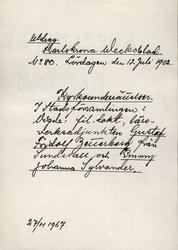 Utdrag
Karlskrona Weckoblad
No 80. Lördagen den 12 Juli 1902.
Kyrkounderrättelser.
I Stadsförsamlingen:
Vigde: fil. dokt., läro-
verksadjunkten Gustaf
Fridolf
från
Sundsvall och Emmy
Johanna Sylvander.
27/4 1967.